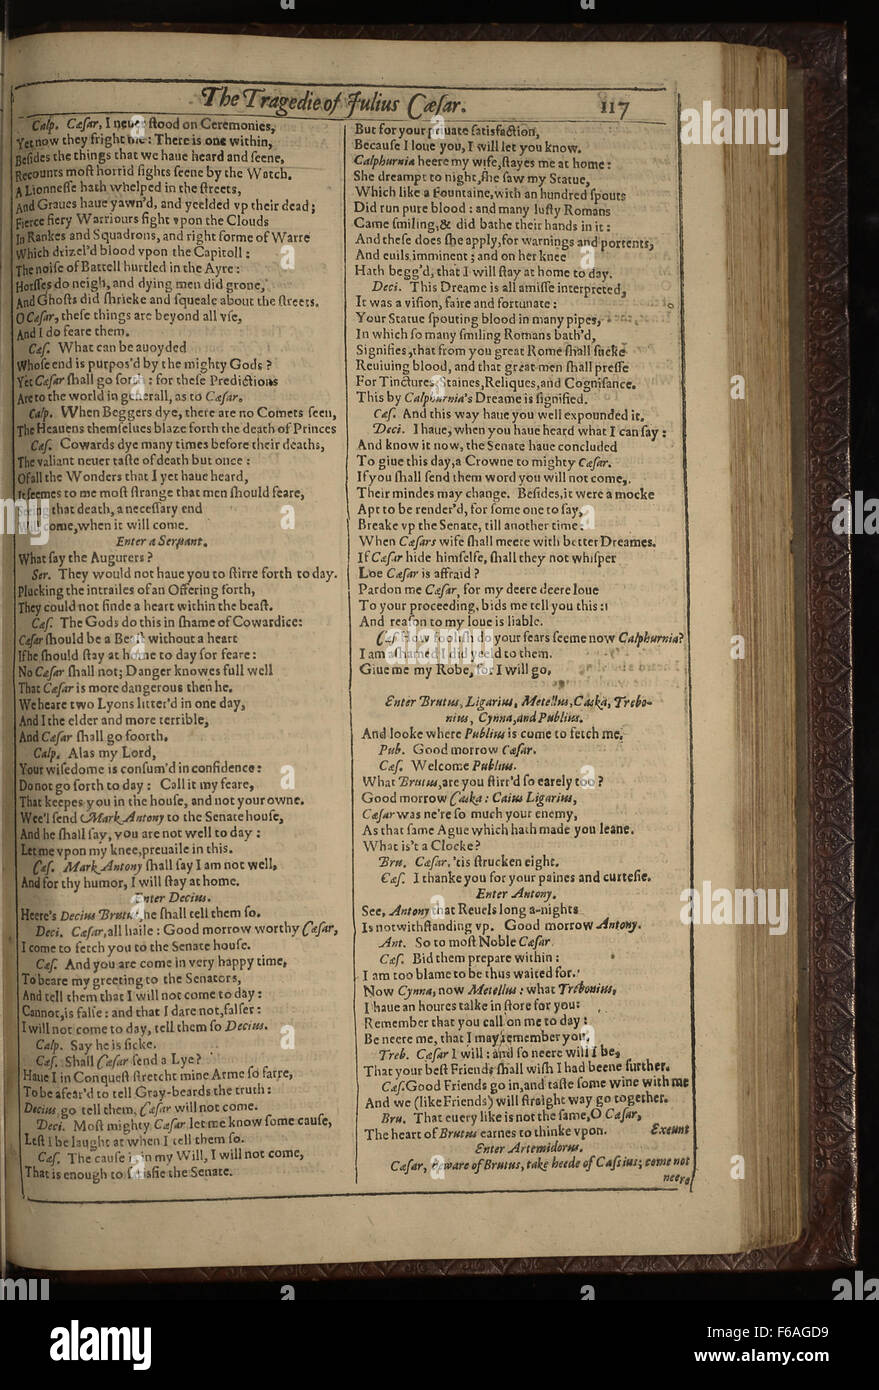 The Tragedie of Julius Cæsar. 117
Calp. Cæſar, I neuer ſtood on Ceremonies,
Yet now they fright me: There is one within,
Beſides the things that we haue heard and ſeene,
Recounts moſt horrid ſights ſeene by the Watch.
A Lionneſſe hath whelped in the ſtreets,
And Graues haue yawn'd, and yeelded vp their dead;
Fierce fiery Warriours fight vpon the Clouds
In Rankes and Squadrons, and right forme of Warre
Which drizel'd blood vpon the Capitoll:
The noiſe of Battell hurtled in the Ayre:
Horſſes do neigh, and dying men did grone,
And Ghoſts did ſhrieke and ſqueale about the ſtreets.
O Cæſar, theſe things are beyond all vſe,
And I do feare them.
Cæſ. What can be auoyded
Whoſe end is purpos'd by the mighty Gods?
Yet Cæſar ſhall go forth: for theſe Predictions
Are to the world in generall, as to Cæſar.
Calp. When Beggers dye, there are no Comets ſeen,
The Heauens themſelues blaze forth the death of Princes
Cæſ. Cowards dye many times before their deaths,
The valiant neuer taſte of death but once:
Of all the Wonders that I yet haue heard,
It ſeemes to me moſt ſtrange that men ſhould feare,
Seeing that death, a neceſſary end
Will come, when it will come.
Enter a Seruant.
What ſay the Augurers?
Ser. They would not haue you to ſtirre forth to day.
Plucking the intrailes of an Offering forth,
They could not finde a heart within the beaſt.
Cæſ. The Gods do this in ſhame of Cowardice:
Cæſar ſhould be a Beaſt without a heart
If he ſhould ſtay at home to day for feare:
No Cæſar ſhall not; Danger knowes full well
That Cæſar is more dangerous then he.
We heare two Lyons litter'd in one day,
And I the elder and more terrible,
And Cæſar ſhall go foorth.
Calp. Alas my Lord,
Your wiſedome is conſum'd in confidence:
Do not go forth to day: Call it my feare,
That keepes you in the houſe, and not your owne.
Wee'l ſend Mark Antony to the Senate houſe,
And he ſhall ſay, you are not well to day:
Let me vpon my knee, preuaile in this.
Cæſ. Mark Antony ſhall ſay I am not well,
And for thy humor, I will ſtay at home.
Enter Decius.
Heere's Decius Brutus, he ſhall tell them ſo.
Deci. Cæſar, all haile: Good morrow worthy Cæſar,
I come to fetch you to the Senate houſe.
Cæſ. And you are come in very happy time,
To beare my greeting to the Senators,
And tell them that I will not come to day:
Cannot, is falſe: and that I dare not, falſer:
I will not come to day, tell them ſo Decius.
Calp. Say he is ſicke.
Cæſ. Shall Cæſar ſend a Lye?
Haue I in Conqueſt ſtretcht mine Arme ſo farre,
To be afear'd to tell Gray-beards the truth:
Decius, go tell them, Cæſar will not come.
Deci. Moſt mighty Cæſar let me know ſome cauſe,
Leſt I be laught at when I tell them ſo.
Cæſ. The cauſe is in my Will, I will not come,
That is enough to ſatisfie the Senate.
But for your priuate ſatisfaction,
Becauſe I loue you, I will let you know.
Calphurnia heere my wife, ſtayes me at home:
She dreampt to night, ſhe ſaw my Statue,
Which like a Fountaine, with an hundred ſpouts
Did run pure blood: and many luſty Romans
Came ſmiling, & did bathe their hands in it:
And theſe does ſhe apply, for warnings and portents,
And euils imminent; and on her knee
Hath begg'd, that I will ſtay at home to day.
Deci. This Dreame is all amiſſe interpreted,
It was a viſion, faire and fortunate:
Your Statue ſpouting blood in many pipes,
In which ſo many ſmiling Romans bath'd,
Signifies, that from you great Rome ſhall ſucke
Reuiuing blood, and that great men ſhall preſſe
For Tinctures, Staines, Reliques, and Cogniſance.
This by Calphurnia's Dreame is ſignified.
Cæſ. And this way haue you well expounded it.
Deci. I haue, when you haue heard what I can ſay:
And know it now, the Senate haue concluded
To giue this day, a Crowne to mighty Cæſar.
If you ſhall ſend them word you will not come,
Their mindes may change. Beſides, it were a mocke
Apt to be render'd, for ſome one to ſay,
Breake vp the Senate, till another time:
When Cæſars wife ſhall meete with better Dreames.
If Cæſar hide himſelfe, ſhall they not whiſper
Loe Cæſar is affraid?
Pardon me Cæſar, for my deere deere loue
To your proceeding, bids me tell you this:
And reaſon to my loue is liable.
Cæſ. How fooliſh do your fears ſeeme now Calphurnia?
I am aſhamed I did yeeld to them.
Giue me my Robe, for I will go.
Enter Brutus, Ligarius, Metellus, Caska, Trebo-
nius, Cynna, and Publius.
And looke where Publius is come to fetch me.
Pub. Good morrow Cæſar.
Cæſ. Welcome Publius.
What Brutus, are you ſtirr'd ſo earely too?
Good morrow Caska: Caius Ligarius,
Cæſar was ne're ſo much your enemy,
As that ſame Ague which hath made you leane.
What is't a Clocke?
Bru. Cæſar, 'tis ſtrucken eight.
Cæſ. I thanke you for your paines and curteſie.
Enter Antony.
See, Antony that Reuels long a-nights
Is notwithſtanding vp. Good morrow Antony.
Ant. So to moſt Noble Cæſar.
Cæſ. Bid them prepare within:
I am too blame to be thus waited for.
Now Cynna, now Metellus: what Trebonius,
I haue an houres talke in ſtore for you:
Remember that you call on me to day:
Be neere me, that I may remember you.
Treb. Cæſar I will: and ſo neere will I be,
That your beſt Friends ſhall wiſh I had beene further.
Cæſ. Good Friends go in, and taſte ſome wine with me
And we (like Friends) will ſtraight way go together.
Bru. That euery like is not the ſame, O Cæſar,
The heart of Brutus earnes to thinke vpon. Exeunt
Enter Artemidorus.
Cæſar, beware of Brutus, take heede of Caſsius; come not
neere
alamy
Image ID: F6AGD9
www.alamy.com